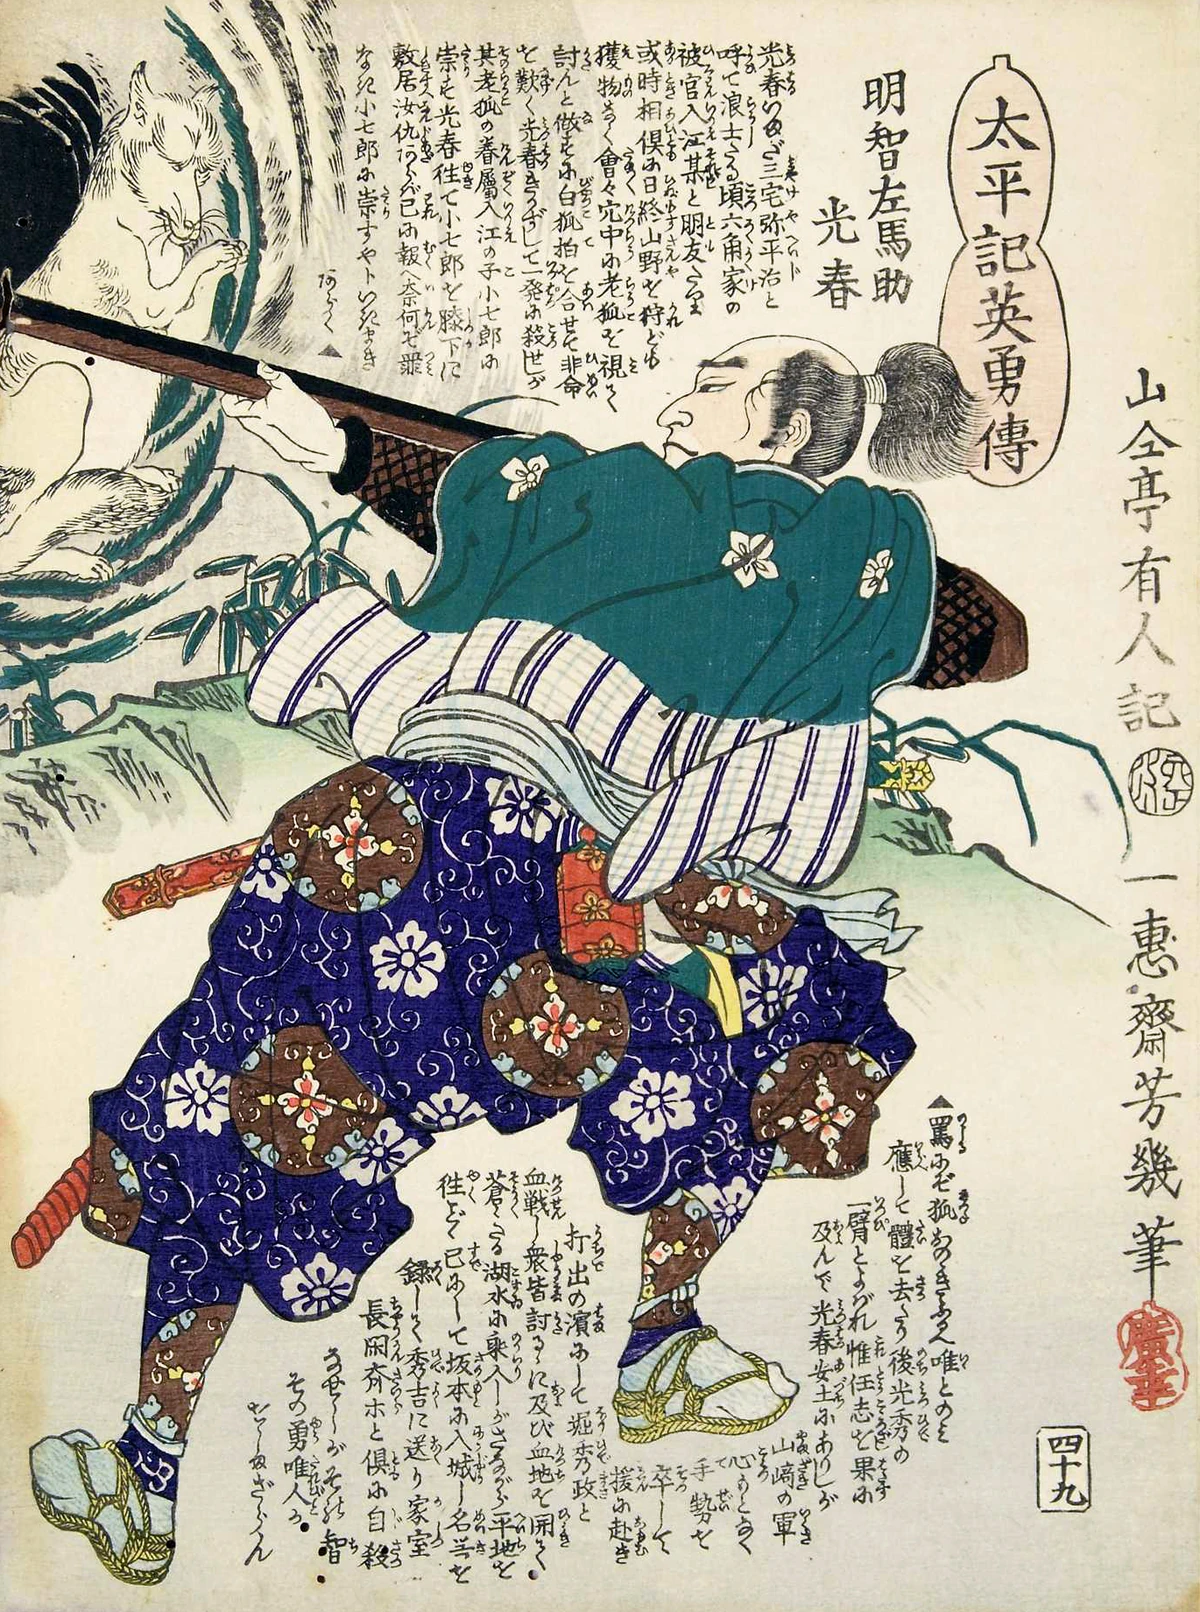 太平記英勇傳
明智左馬助
光春
光春いまだ三宅弥平治と
呼て浪士たる頃六角家の
被官入江某と朋友たり
或時相倶に日終山野を狩ども
獲物なく會々穴中に老狐を視て
討んと做すに白狐拍を合せて非命
を歎く光春きかずして一発に殺せしが
其老狐の眷属入江の子小七郎に
崇す光春往て小七郎を膝下に
敷居汝仇あらバ已に報へ奈何ぞ罪
なき小七郎に崇すやトいたまき
山仝亭有人記
一惠齋芳幾筆
罵にぞ狐
應じて體を去たり後光秀の
一臂とよばれ惟任志を果に
及んで光春安土にありしが
山崎の軍
手勢を
卒して
援に赴き
打出の濱にして堀秀政と
血戦し衆皆討るゝに及び血地を開て
蒼々たる湖水に乗入しがさながら平地を
往ごとく已にして坂本に入城し名噐を
録して秀吉に送り家室
長閑斎ホと倶に自殺
なせしがその智
その勇唯人の
四十九